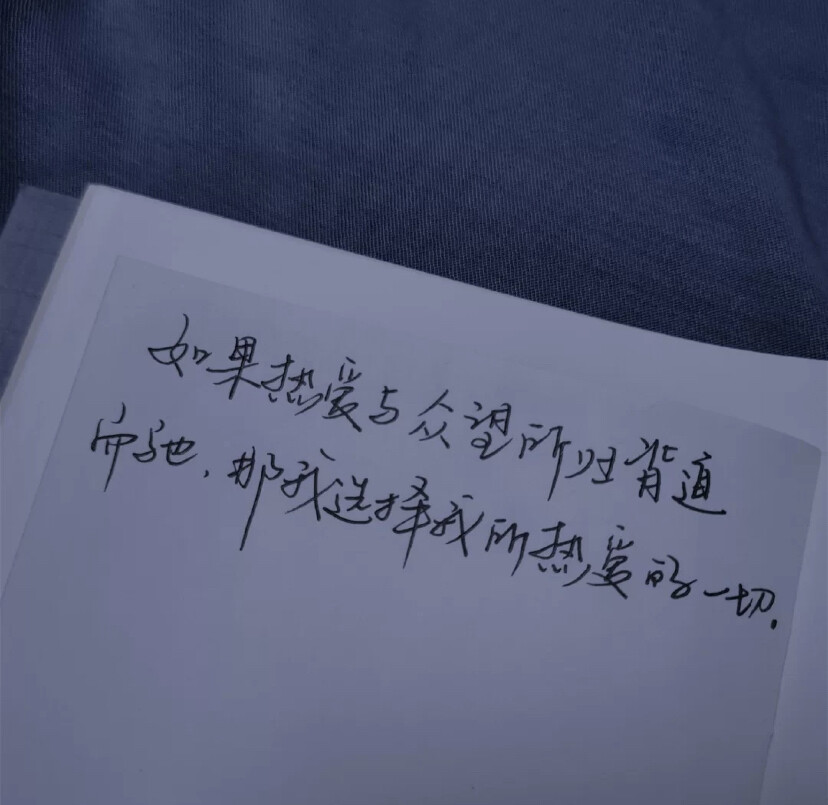 如果热爱与众望所归背道
而驰，那我选择我所热爱的一切.